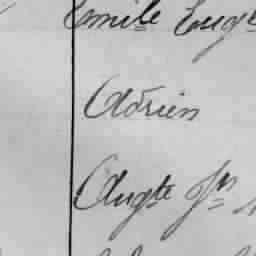 Emile Eug
Adrien
Augte Jn